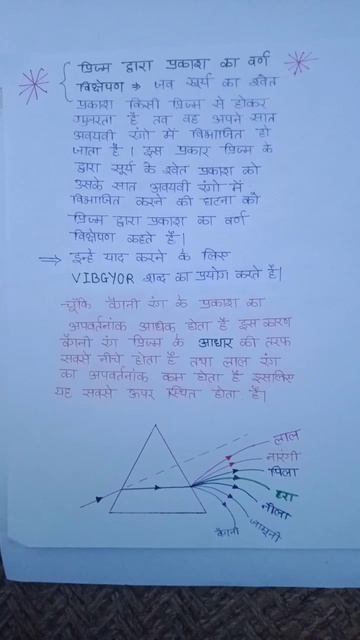 प्रिज्म द्वारा प्रकाश का वर्ण
विक्षेपण ⇒ जब सूर्य का श्वेत
प्रकाश किसी प्रिज्म से होकर
गुजरता है तब वह अपने सात
अवयवी रंगो में विभाजित हो
जाता है। इस प्रकार प्रिज्म के
द्वारा सूर्य के श्वेत प्रकाश को
उसके सात अवयवी रंगो में
विभाजित करने की घटना को
प्रिज्म द्वारा प्रकाश का वर्ण
विक्षेपण कहते हैं।
⇒ इन्हे याद करने के लिए
VIBGYOR शब्द का प्रयोग करते हैं।
चूंकि बैगनी रंग के प्रकाश का
अपवर्तनांक अधिक होता है इस कारण
बैगनी रंग प्रिज्म के आधार की तरफ
सबसे नीचे होता है तथा लाल रंग
का अपवर्तनांक कम होता है इसलिए
यह सबसे ऊपर स्थित होता है।
लाल
नारंगी
पिला
हरा
नीला
जामुनी
बैगनी